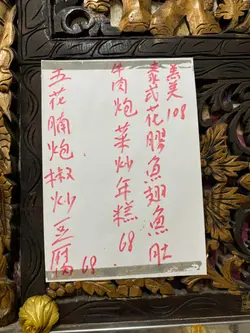 泰式花膠魚翅魚肚
羹 108
牛肉炮菜炒年糕 68
五花腩炮椒炒豆腐 68